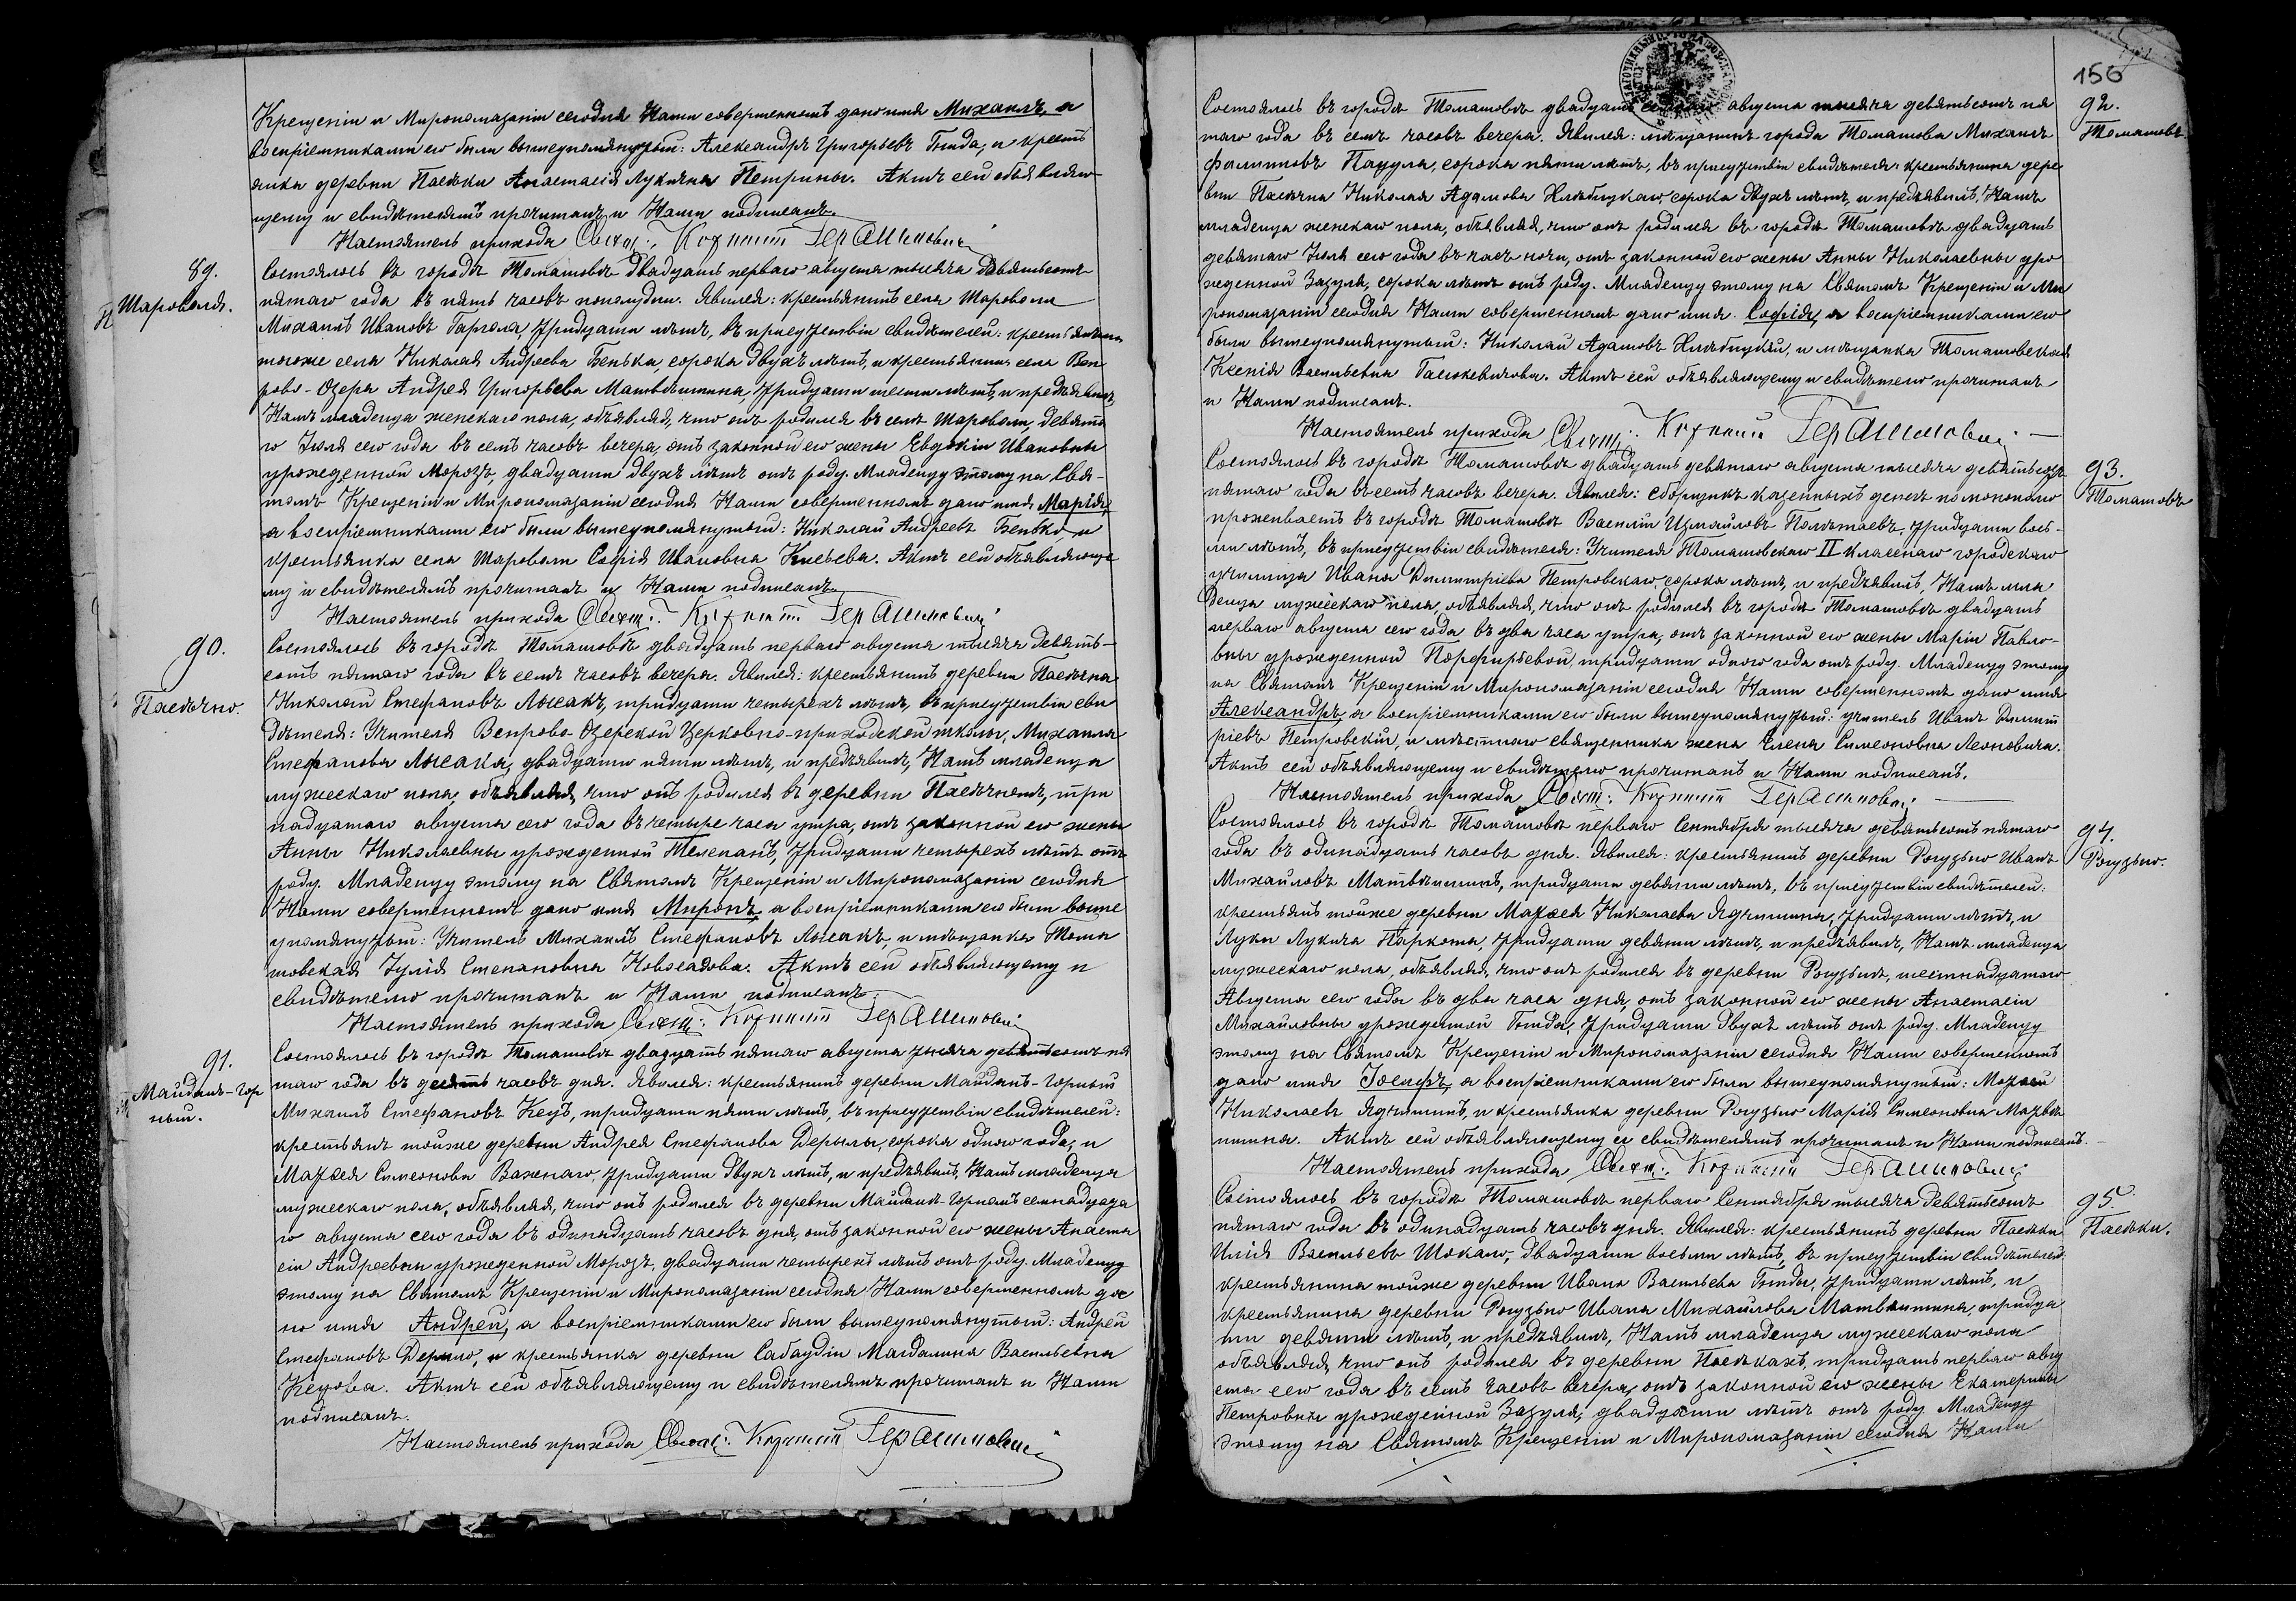 Крещеніи и Миропомазаніи сегодня Нами совершенномъ дано имя Михаилъ, а
воспріемниками его были вышеупомянутый: Александръ Григорьевъ Гында, и кресть
янка деревни Пасѣки Анастасія Лукична Петрины. Актъ сей объявляю-
щему и свидѣтелямъ прочитанъ и Нами подписанъ.
Настоятель прихода Свящ:. Корнилій Герасимовичъ
89.
Шароволя.
Состоялось въ городѣ Томашовѣ двадцать перваго августа тысяча девятьсотъ
пятаго года въ пять часовъ пополудни. Явился: крестьянинъ села Шароволи
Михаилъ Ивановъ Гаргола, тридцати лѣтъ, въ присутствіи свидѣтелей: крестьянъ
тогоже села Николая Андреева Бенька, сорока двухъ лѣтъ, и крестьянина села Вен
рово-Озера Андрея Григорьева Матвѣишина, тридцати шести лѣтъ, и предъявилъ
Намъ младенца женскаго пола, объявляя, что онъ родился въ селѣ Шароволи, девята
го Іюля сего года въ семь часовъ вечера, отъ законной его жены Евдокіи Ивановны
урожденной Морозъ, двадцати двухъ лѣтъ отъ роду. Младенцу этому на Свя-
томъ Крещеніи и Миропомазаніи сегодня Нами совершенномъ дано имя Марія,
а воспріемниками его были вышеупомянутый: Николай Андреевъ Бенько, и
крестьянка села Шароволи Софія Ивановна Кисьева. Актъ сей объявляюще
му и свидѣтелямъ прочитанъ и Нами подписанъ.
Настоятель прихода Свящ:. Корнилій Герасимовичъ
90.
Пасѣчно.
Состоялось въ городѣ Томашовѣ двадцать перваго августа тысяча девять-
сотъ пятаго года въ семь часовъ вечера. Явился: крестьянинъ деревни Пасѣчна
Николай Стефановъ Лысакъ, тридцати четырехъ лѣтъ, въ присутствіи сви
дѣтеля: Учителя Венрово-Озерской Церковно-приходской школы, Михаила
Стефанова Лысака, двадцати пяти лѣтъ, и предъявилъ Намъ младенца
мужескаго пола, объявляя, что онъ родился въ деревни Пасѣчномъ, три
надцатаго августа сего года въ четыре часа утра, отъ законной его жены
Анны Николаевны урожденной Телепанъ, тридцати четырехъ лѣтъ отъ
роду. Младенцу этому на Святомъ Крещеніи и Миропомазаніи сегодня
Нами совершенномъ дано имя Миронъ, а воспріемниками его были выше
упомянутый: Учитель Михаилъ Стефановъ Лысакъ, и мѣщанка Тома
шовская Іулія Степановна Новосадова. Актъ сей объявляющему и
свидѣтелю прочитанъ и Нами подписанъ.
Настоятель прихода Свящ:. Корнилій Герасимовичъ
91.
Майданъ-Гор
ный.
Состоялось въ городѣ Томашовѣ двадцать пятаго августа тысяча девятьсотъ пя
таго года въ десять часовъ дня. Явился: крестьянинъ деревни Майданъ-Горный
Михаилъ Стефановъ Кецъ, тридцати пяти лѣтъ, въ присутствіи свидѣтелей:
крестьянъ тойже деревни Андрея Стефанова Дерылы, сорока одного года, и
Матѳея Симеонова Важнаго, тридцати двухъ лѣтъ, и предъявилъ Намъ младенца
мужескаго пола, объявляя, что онъ родился въ деревни Майданѣ-Горномъ семнадцата
го августа сего года въ одинадцать часовъ дня, отъ законной его жены Анаста
сіи Андреевны урожденной Морозъ, двадцати четырехъ лѣтъ отъ роду. Младенцу
этому на Святомъ Крещеніи и Миропомазаніи сегодня Нами совершенномъ да
но имя Андрей, а воспріемниками его были вышеупомянутый: Андрей
Стефановъ Дерыло, и крестьянка деревни Сабаудіи Магдалина Васильевна
Кецова. Актъ сей объявляющему и свидѣтелямъ прочитанъ и Нами
подписанъ.
Настоятель прихода Свящ:. Корнилій Герасимовичъ
156
92.
Томашовъ
Состоялось въ городѣ Томашовѣ двадцать августа тысяча девятьсотъ пя
таго года въ семь часовъ вечера. Явился: мѣщанинъ города Томашова Михаилъ
Филиповъ Пацула, сорока пяти лѣтъ, въ присутствіи свидѣтеля: крестьянина дере
вни Пасѣчна Николая Адамова Хлѣбицкаго, сорока двухъ лѣтъ, и предъявилъ Намъ
младенца женскаго пола, объявляя, что онъ родился въ городѣ Томашовѣ двадцать
девятаго Іюля сего года въ часъ ночи, отъ законной его жены Анны Николаевны уро
жденной Зазуля, сорока лѣтъ отъ роду. Младенцу этому на Святомъ Крещеніи и Ми
ропомазаніи сегодня Нами совершенномъ дано имя Софія, а воспріемниками его
были вышеупомянутый: Николай Адамовъ Хлѣбицкій, и мѣщанка Томашовская
Ксенія Васильевна Гаськевичова. Актъ сей объявляющему и свидѣтелю прочитанъ
и Нами подписанъ.
Настоятель прихода Свящ:. Корнилій Герасимовичъ
93.
Томашовъ
Состоялось въ городѣ Томашовѣ двадцать девятаго августа тысяча девятьсотъ
пятаго года въ семь часовъ вечера. Явился: сборщикъ казенныхъ денегъ
проживаетъ въ городѣ Томашовѣ Василій Измаиловъ Полѣтаевъ, тридцати вось-
ми лѣтъ, въ присутствіи свидѣтеля: Учителя Томашовскаго II класснаго городскаго
училища Ивана Димитріева Петровскаго, сорока лѣтъ, и предъявилъ Намъ мла
денца мужескаго пола, объявляя, что онъ родился въ городѣ Томашовѣ двадцать
перваго августа сего года въ два часа утра, отъ законной его жены Маріи Павло-
вны урожденной Порфирьевой, тридцати одного года отъ роду. Младенцу этому
на Святомъ Крещеніи и Миропомазаніи сегодня Нами совершенномъ дано имя
Александръ, а воспріемниками его были вышеупомянутый: учитель Иванъ Димит
ріевъ Петровскій, и мѣстнаго священника жена Елена Симеоновна Леоновича.
Актъ сей объявляющему и свидѣтелю прочитанъ и Нами подписанъ.
Настоятель прихода Свящ:. Корнилій Герасимовичъ
94.
Рогузьно.
Состоялось въ городѣ Томашовѣ перваго Сентября тысяча девятьсотъ пятаго
года въ одинадцать часовъ дня. Явился: крестьянинъ деревни Рогузьно Иванъ
Михайловъ Матвѣишинъ, тридцати девяти лѣтъ, въ присутствіи свидѣтелей:
крестьянъ тойже деревни Матѳея Николаева Ядчишина, тридцати лѣтъ, и
Луки Лукича Паркота, тридцати девяти лѣтъ, и предъявилъ Намъ младенца
мужескаго пола, объявляя, что онъ родился въ деревни Рогузьнѣ, шестнадцатаго
Августа сего года въ два часа дня, отъ законной его жены Анастасіи
Михайловны урожденной Гында, тридцати двухъ лѣтъ отъ роду. Младенцу
этому на Святомъ Крещеніи и Миропомазаніи сегодня Нами совершенномъ
дано имя Іосифъ, а воспріемниками его были вышеупомянутый: Матѳей
Николаевъ Ядчишинъ, и крестьянка деревни Рогузьно Марія Симеоновна Матвѣи
шина. Актъ сей объявляющему и свидѣтелямъ прочитанъ и Нами подписанъ.
Настоятель прихода Свящ:. Корнилій Герасимовичъ
95.
Пасѣки.
Состоялось въ городѣ Томашовѣ перваго Сентября тысяча девятьсотъ
пятаго года въ одинадцать часовъ дня. Явился: крестьянинъ деревни Пасѣки
Илія Васильевъ Шокало, двадцати восьми лѣтъ, въ присутствіи свидѣтелей
крестьянина тойже деревни Ивана Васильева Гынды, тридцати лѣтъ, и
крестьянина деревни Рогузьно Ивана Михайлова Матвѣишина, тридца
ти девяти лѣтъ, и предъявилъ Намъ младенца мужескаго пола
объявляя, что онъ родился въ деревни Пасѣкахъ, тридцать перваго авгу
ста сего года въ семь часовъ вечера, отъ законной его жены Екатерины
Петровны урожденной Зазуля, двадцати лѣтъ отъ роду. Младенцу
этому на Святомъ Крещеніи и Миропомазаніи сегодня Нами